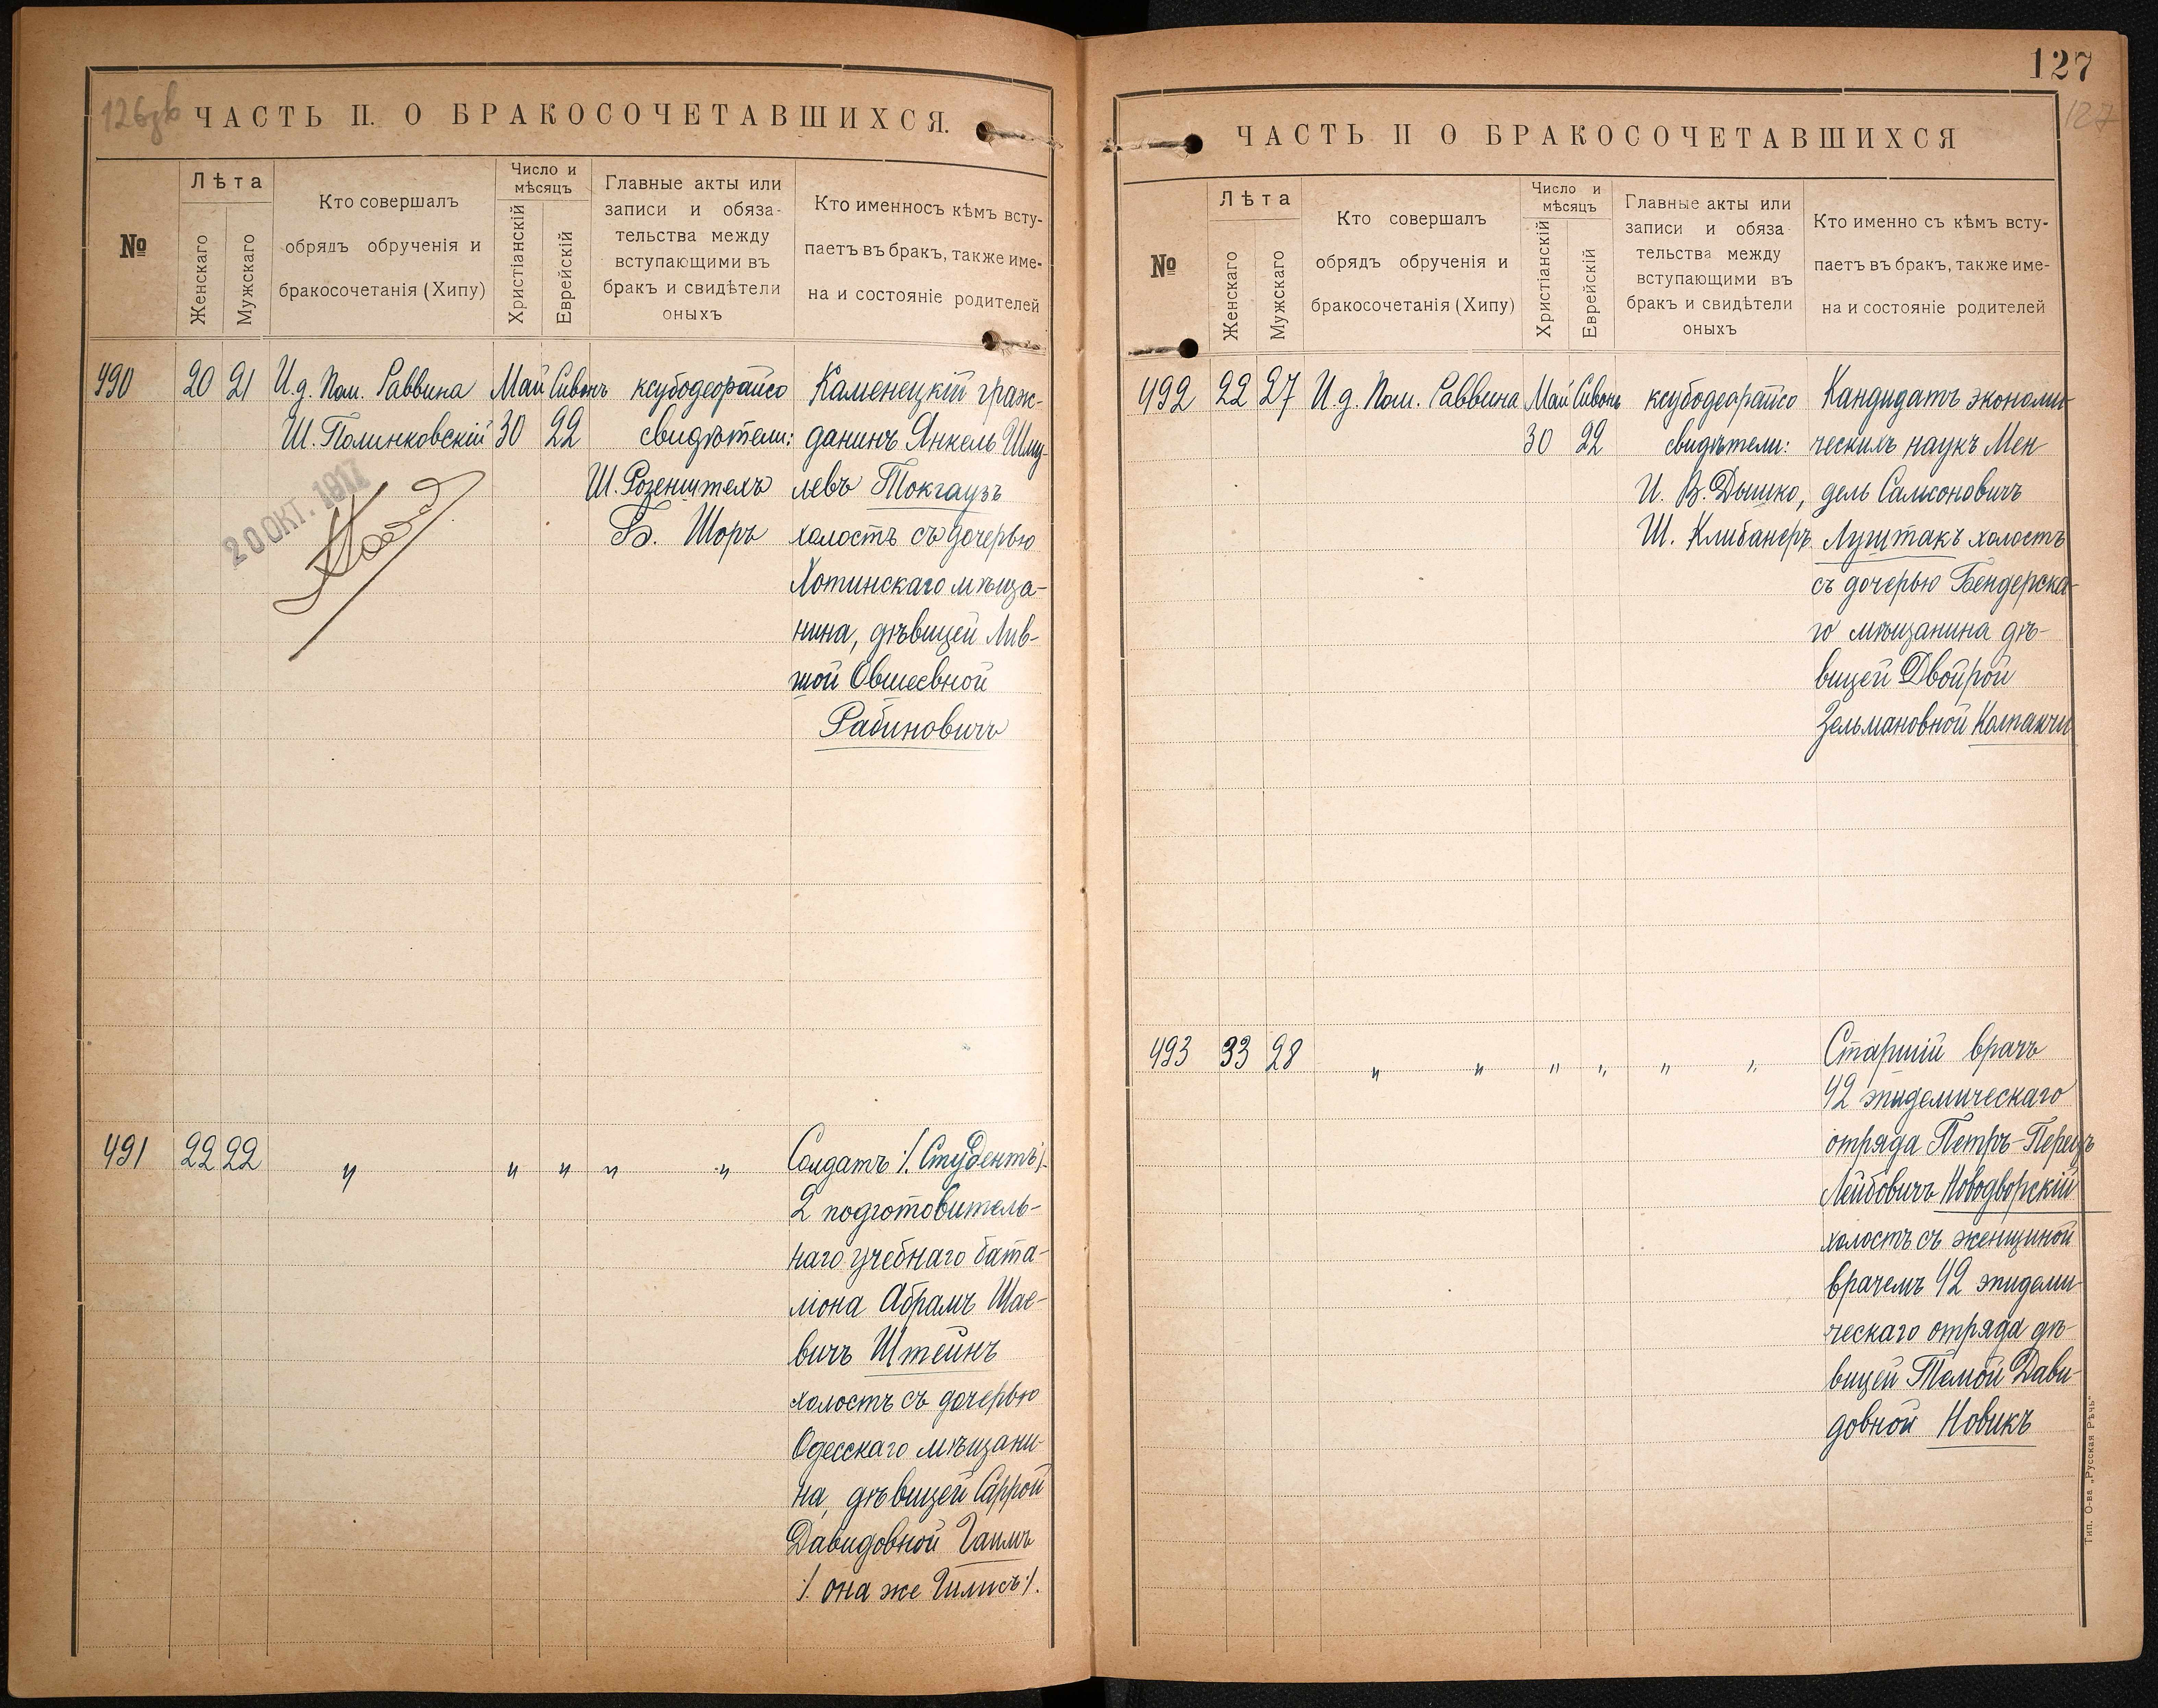 126зв
ЧАСТЬ II. О БРАКОСОЧЕТАВШИХСЯ.
№
Лѣта
Женскаго
Мужскаго
Кто совершалъ
обрядъ обрученія и
бракосочетанія (Хипу)
Число и
мѣсяцъ
Христіанскій
Еврейскій
Главные акты или
записи и обяза-
тельства между
вступающими въ
бракъ и свидѣтели
оныхъ
Кто именносъ кѣмъ всту-
паетъ въ бракъ, также име-
на и состояніе родителей
490 20 21 И.д. Пом. Раввина Май Сивонъ ксубодеорайсо Каменецкій граж-
Ш. Полинковскій 30 22 свидѣтели: данинъ Янкель Шму-
Ш. Розенштехъ левъ Токгаузъ
Б. Шоръ холостъ съ дочерью
20 ОКТ. 1917
Хотинскаго мѣща-
нина, дѣвицей Лив-
шой Овшеевной
Рабиновичъ
491 22 22 " " " " " Солдатъ /. Студентъ/.
2 подготовитель-
наго учебнаго бата-
ліона Абрамъ Шае-
вичъ Штейнъ
холостъ съ дочерью
Одесскаго мѣщани-
на, дѣвицей Саррой
Давидовной Гаимъ
/. она же Гилисъ/.
127
127
ЧАСТЬ II О БРАКОСОЧЕТАВШИХСЯ
№
Лѣта
Женскаго
Мужскаго
Кто совершалъ
обрядъ обрученія и
бракосочетанія (Хипу)
Число и
мѣсяцъ
Христіанскій
Еврейскій
Главные акты или
записи и обяза
тельства между
вступающими въ
бракъ и свидѣтели
оныхъ
Кто именно съ кѣмъ всту-
паетъ въ бракъ, также име-
на и состояніе родителей
492 22 27 И.д. Пом. Раввина Май Сивонъ ксубодеорайсо Кандидатъ экономи-
30 22 свидѣтели: ческихъ наукъ Мен
И. В. Дышко, дель Самсоновичъ
Ш. Клибанеръ. Луштакъ холостъ
съ дочерью Бендерска-
го мѣщанина дѣ-
вицей Двойрой
Зельмановной Колпакчи
493 33 28 " " " " " " Старшій врачъ
42 эпидемическаго
отряда Петръ-Перецъ
Лейбовичъ Новодворскій
холостъ съ женщиной
врачемъ 42 эпидеми-
ческаго отряда дѣ-
вицей Темой Дави-
довной Новикъ
Тип. О-ва „Русская Рѣчь"